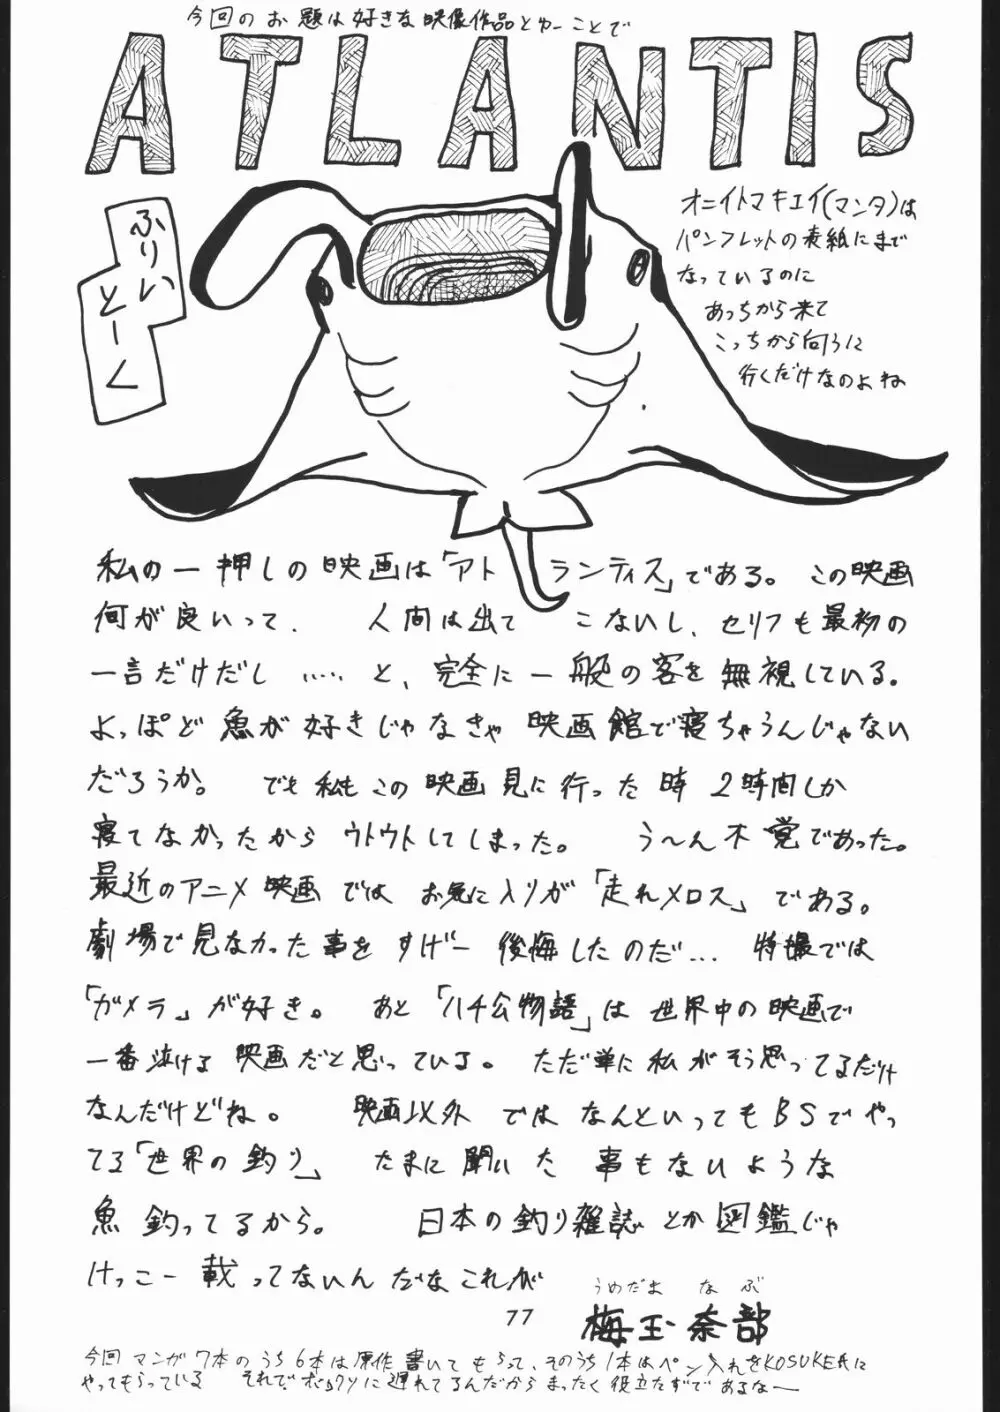 今回のお題は好きな映像作品とゆーことで
ATLANTIS
ふりい
とーく
オニイトマキエイ(マンタ)は
パンフレットの表紙にまで
なっているのに
あっちから来て
こっちから向うに
行くだけなのよね
私の一押しの映画は「アトランティス」である。この映画
何が良いって、人間は出てこないし、セリフも最初の
一言だけだし……と、完全に一般の客を無視している。
よっぽど魚が好きじゃなきゃ映画館で寝ちゃうんじゃない
だろうか。でも私もこの映画見に行った時2時間しか
寝てなかったからウトウトしてしまった。う〜ん不覚であった。
最近のアニメ映画ではお気に入りが「走れメロス」である。
劇場で見なかった事をすげー後悔したのだ… 特撮では
「ガメラ」が好き。あと「ハチ公物語」は世界中の映画で
一番泣ける映画だと思っている。ただ単に私がそう思ってるだけ
なんだけどね。映画以外ではなんといってもBSでやっ
てる「世界の釣り」たまに聞いた事もないような
魚釣ってるから。日本の釣り雑誌とか図鑑じゃ
けっこー載ってないんだなこれが
うめだま なぶ
梅玉奈部
77
今回マンガ7本のうち6本は原作書いてもらって、そのうち1本はペン入れをKOSUKE氏に
やってもらっている それでボクソに遅れてるんだからまったく役立たずであるなー